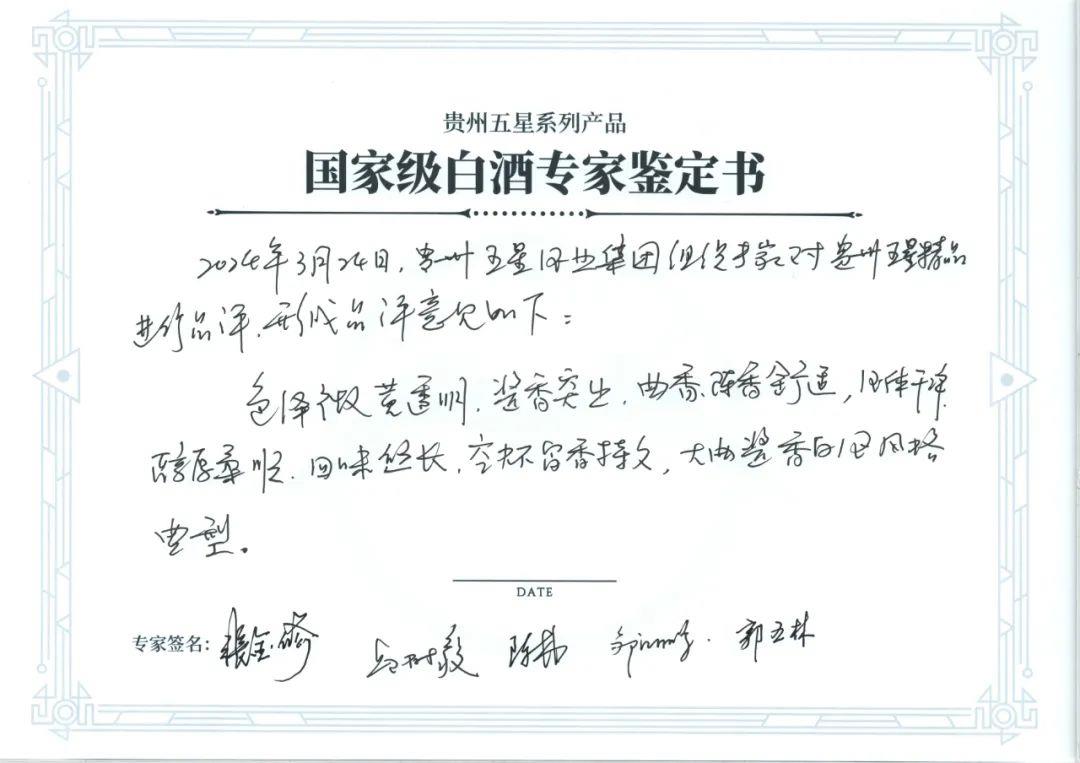 贵州五星系列产品
国家级白酒专家鉴定书
2024年3月24日,贵州五星酒业集团组织专家对贵州五星精品
进行品评,形成品评意见如下:
色泽微黄透明,酱香突出,曲香、陈香舒适,酒体干净
醇厚柔顺,回味悠长,空杯留香持久,大曲酱香白酒风格
典型。
DATE
专家签名: 郭五林